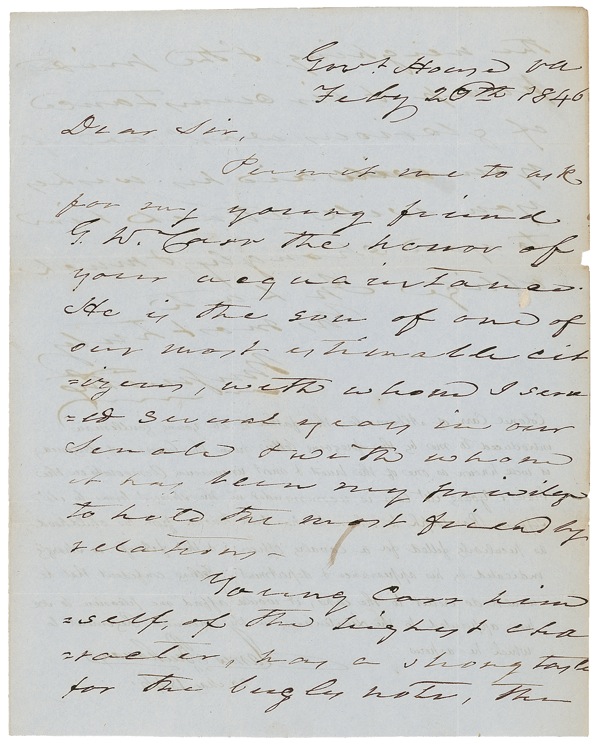 Govt House Va
Feby 20th 1846
Dear Sir,
Permit me to ask
for my young friend
G. W. Carr the honor of
your acquaintance.
He is the son of one of
our most estimable cit
=izens, with whom I serv
=ed several years in our
Senate & with whom
it has been my privilege
to hold the most friendly
relations.
Young Carr him
=self, of the highest cha
=racter, has a strong taste
for the bugle note, the